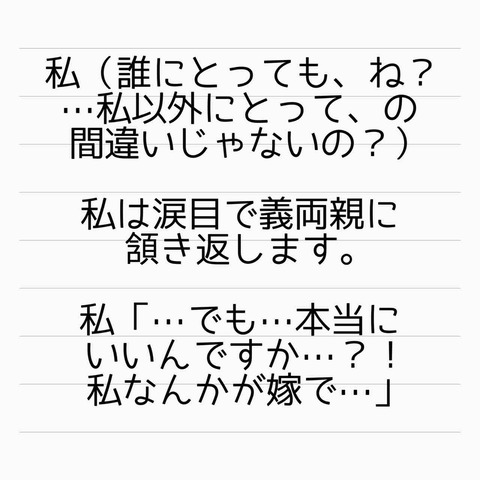 私（誰にとっても、ね？
…私以外にとって、の
間違いじゃないの？）
私は涙目で義両親に
頷き返します。
私「…でも…本当に
いいんですか…？！
私なんかが嫁で…」